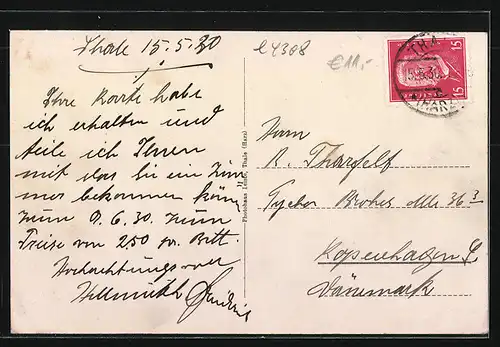 Thale 15.5.30
e4308
€11,-
Ihre Karte habe
ich erhalten und
teile ich Ihnen
mit das Sie ein Zim
mer bekommen kön
zum 9.6.30. zum
Preise von 2.50 pr. Bett.
Hochachtungsvoll
Hellmuth
Photohaus Thale (Harz)
THALE
15.5.30
(HARZ)
15
15
Herrn
A. Thargelf
Tycho Brahes Alle 36³
Kopenhagen S.
Dänemark